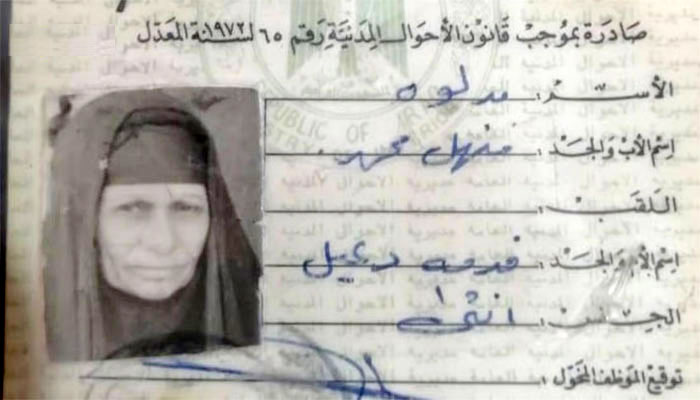 صادرة بموجب قانون الأحوال المدنية رقم ٦٥ لسنة ١٩٧٢ المعدل
الأسم :
اسم الأب والجد : منهل محمد
اللقب :
اسم الأم والجد : دعيل
الجنس : انثى
توقيع الموظف المخول :